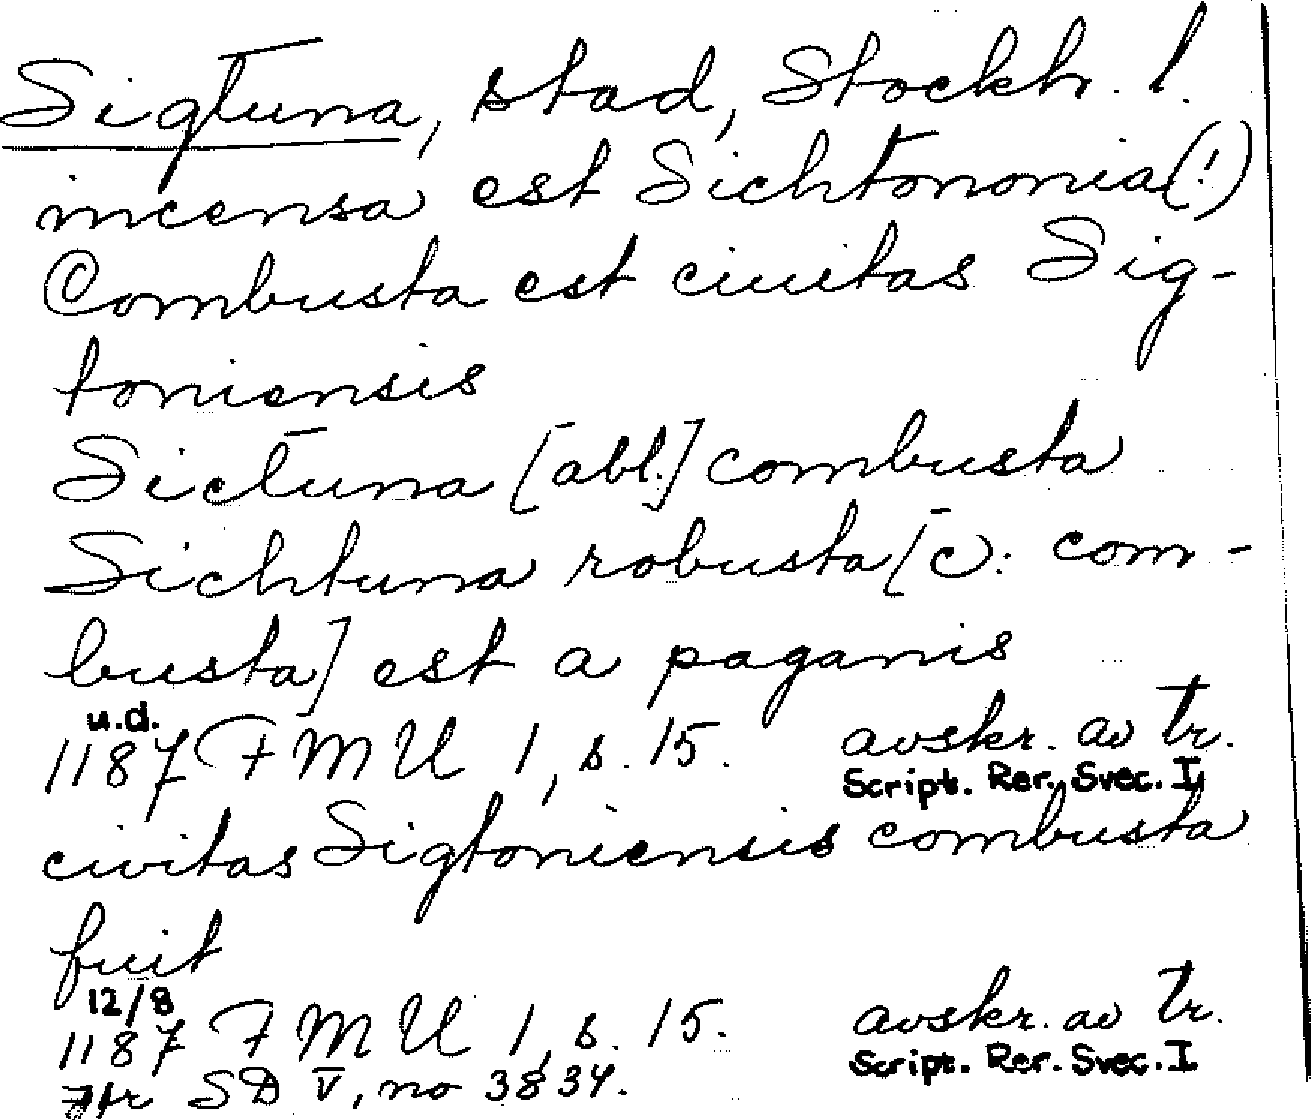 Sigtuna, stad, Stockh. l.
incensa est Sichtononia(!)
Combusta est ciuitas Sig-
toniensis
Sictuna [abl.] combusta
Sichtuna robusta [ɔ: com-
busta] est a paganis
u.d.
1187 FMU 1, s. 15. avskr. av tr.
Script. Rer. Svec. I
civitas Sigtoniensis combusta
fuit
12/8
1187 FMU 1, s. 15. avskr. av tr.
Script. Rer. Svec. I
SD V, no 3834.